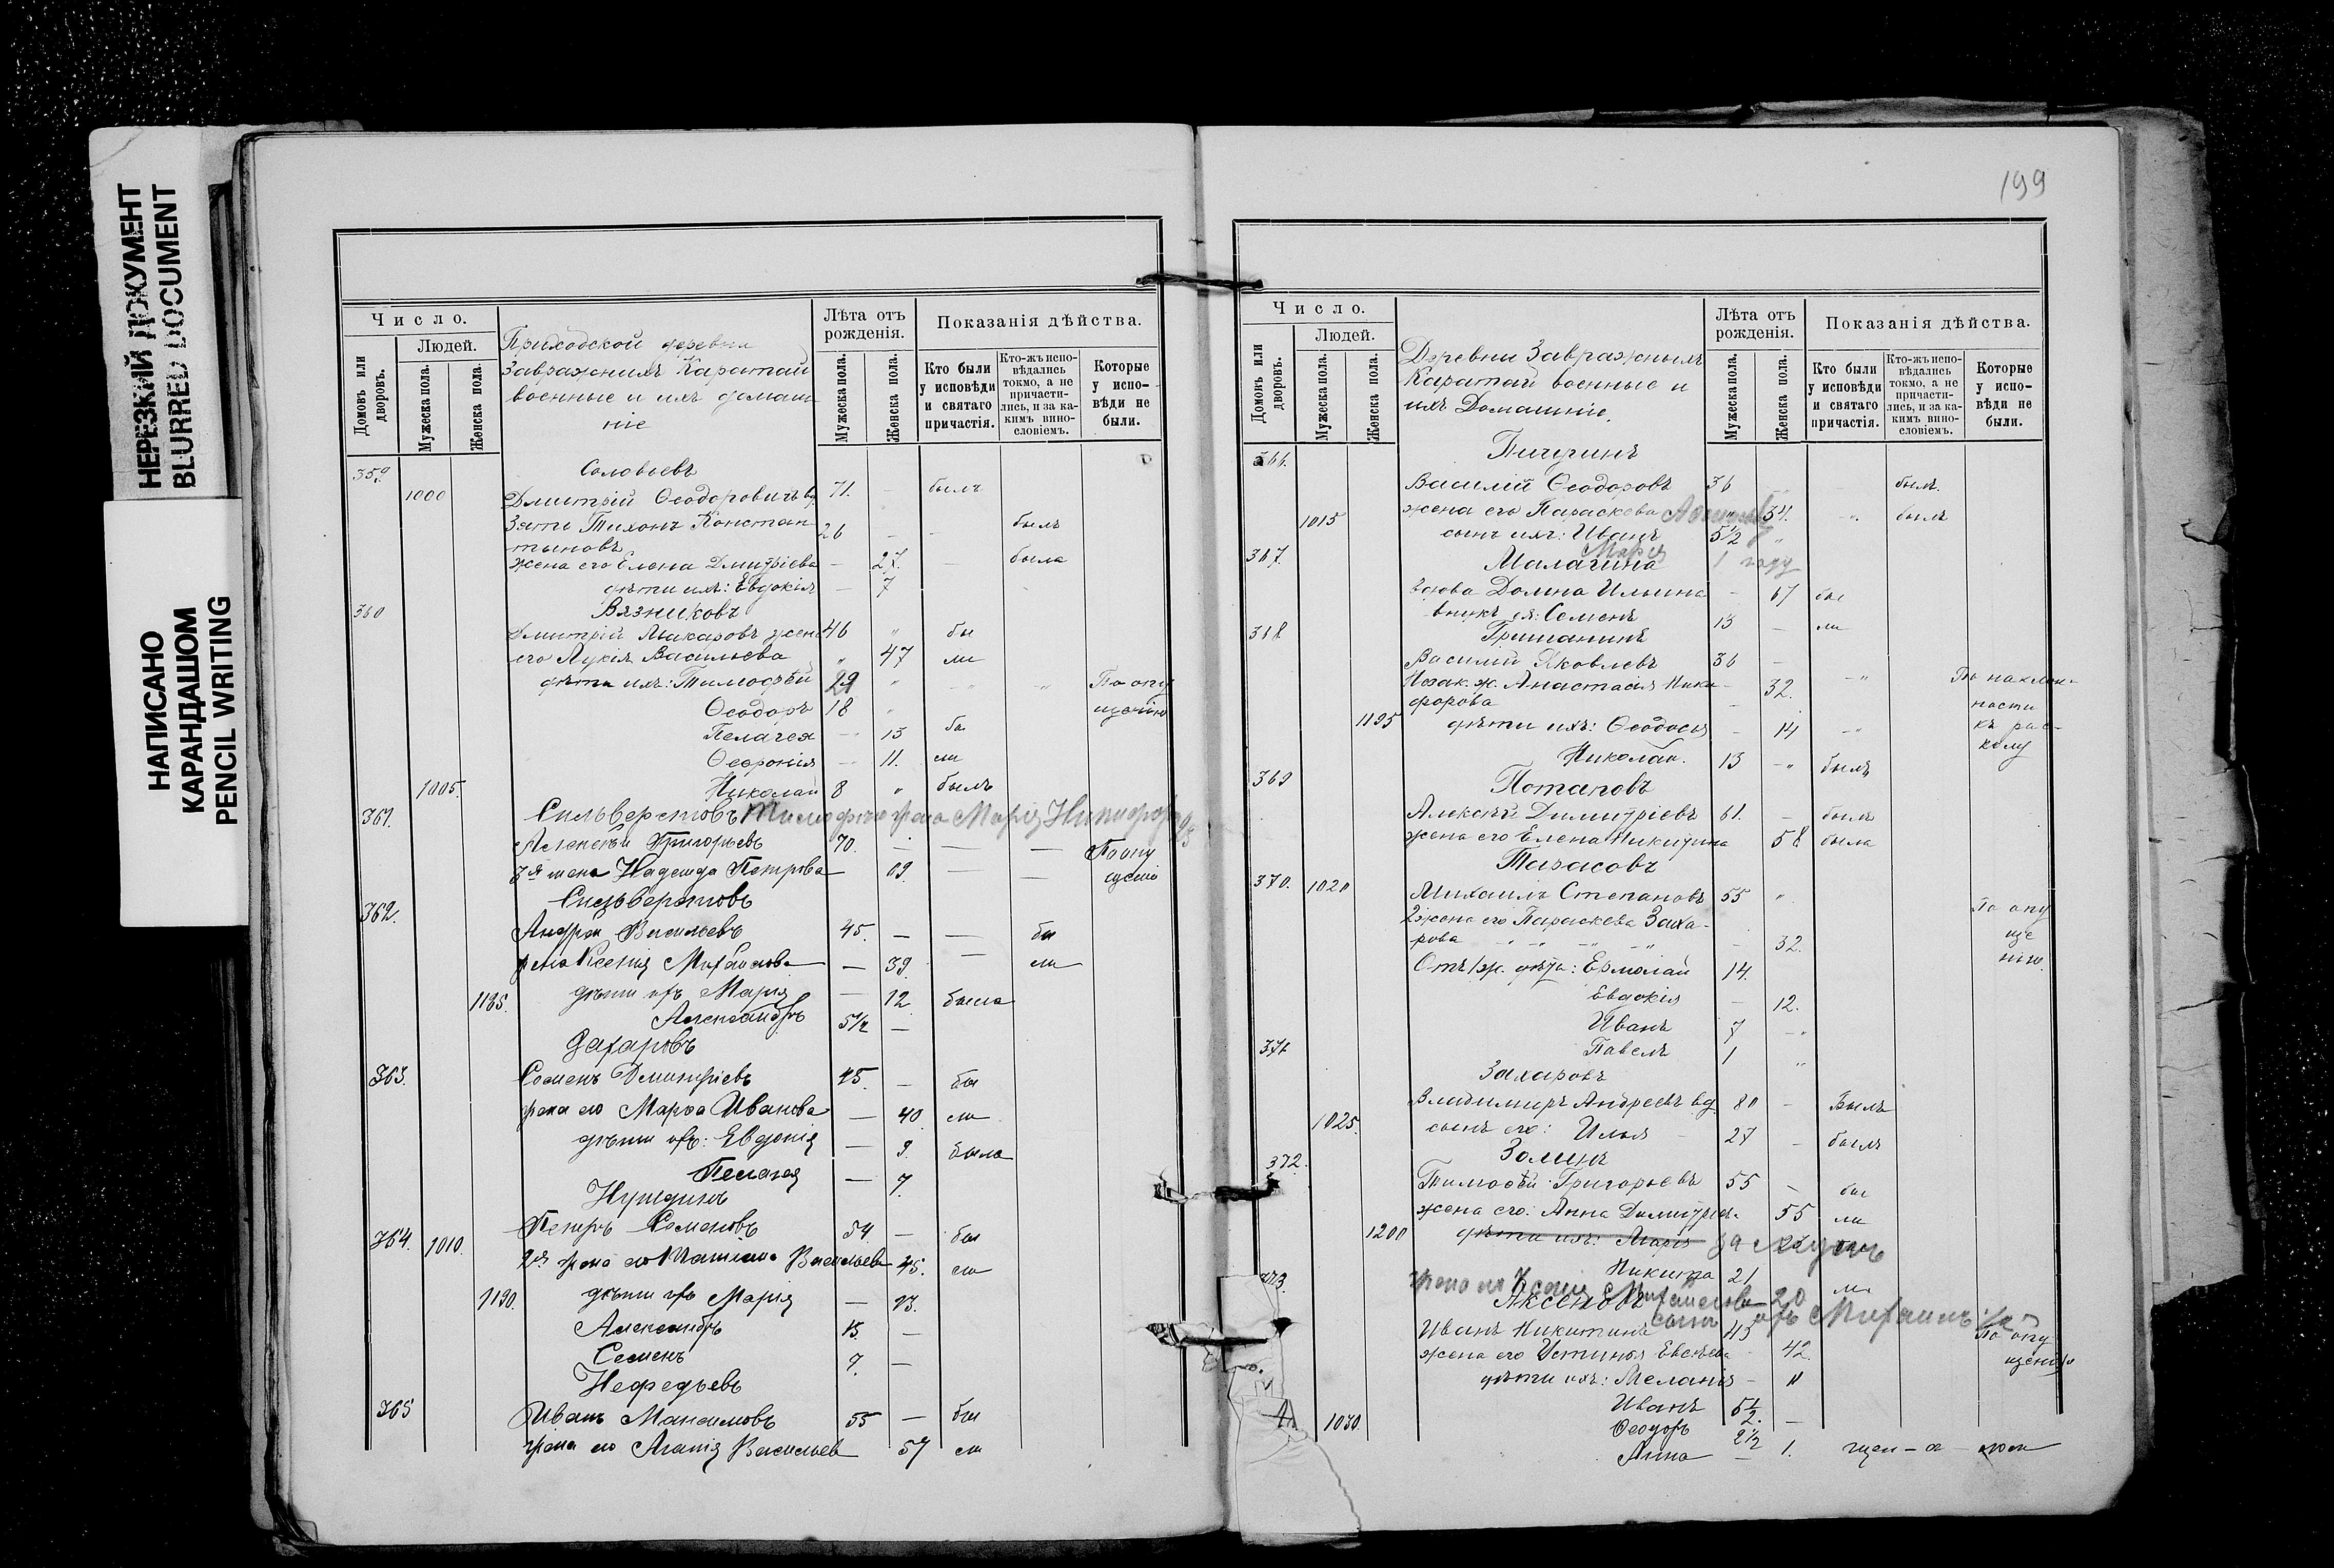 НЕРЕЗКИЙ ДОКУМЕНТ
BLURRED DOCUMENT
НАПИСАНО
КАРАНДАШОМ
PENCIL WRITING
Число.
Людей.
Домовъ или дворовъ.
Мужеска пола.
Женска пола.
Приходской деревни
Завражнихъ Каратай
военные и ихъ домаш
ніе
Лѣта отъ рожденія.
Мужеска пола.
Женска пола.
Показанія дѣйства.
Кто были у исповѣди и святаго причастія.
Кто-жъ исповѣдались токмо, а не причастились, и за какимъ винословіемъ.
Которые у исповѣди не были.
359. Соловьевъ
1000 Дмитрій Ѳеодоровичъ вд. 71. — былъ
Зять Тихонъ Констан 26 — — былъ
тиновъ
жена его Елена Дмитріева — 27. — была
дѣти ихъ: Евдокія — 7
360 Вязниковъ
Дмитрій Макаровъ жена 46 " бы
его Лукія Васильева " 47 ли
дѣти ихъ: Тимоѳей 29 " " " По опу
Ѳеодоръ 18 " щенію
Пелагея — 13 бы
Ѳеѳронія — 11. ли
1005. Николай 8 " былъ
361. Сильверстовъ жена Марія Никифорова
Алексѣй Григорьевъ 70. — — — По опу
Надежда Петрова — 69. — — щенію
362. Сильверстовъ
Андрей Васильевъ 45. — — бы
жена Ксенія Михайлова — 39. — ли
1185. дѣти ихъ Марія — 12 была
Александръ 5½ —
Захаровъ
363. Семенъ Дмитріевъ 45. — бы
жена его Марѳа Иванова — 40. ли
дѣти ихъ: Евдокія — 9. была
Пелагея — 7.
Нуждинъ
364. 1010. Петръ Семеновъ 54. — бы
2я жена его Васильева 45. ли
1190. дѣти ихъ Марія — 13.
Александръ 15. —
Семенъ 7. —
Нефедьевъ
365 Иванъ Максимовъ 55 — бы
жена его Агапія Васильев 57 ли
199
Число.
Людей.
Домовъ или дворовъ.
Мужеска пола.
Женска пола.
Деревни Завражныхъ
Каратай военные и
ихъ Домашніе.
Лѣта отъ рожденія.
Мужеска пола.
Женска пола.
Показанія дѣйства.
Кто были у исповѣди и святаго причастія.
Кто-жъ исповѣдались токмо, а не причастились, и за какимъ винословіемъ.
Которые у исповѣди не были.
366. Пичугинъ
Василій Ѳеодоровъ 36 былъ.
жена его Параскева 34. " былъ
1015 сынъ ихъ: Иванъ 5½ "
Марія 1 году
367. Малагина
вдова Домна Ильина — 67 бы
внукъ ея: Семенъ 13 — ли
368 Гришанинъ
Василій Яковлевъ 36 —
Незак. ж. Анастасія Ники — 32. — " По наклон-
форова ности
1195 дѣти ихъ: Ѳеодосья — 14 — " къ рас-
Николай. 13 — " былъ колу
369 Потаповъ
Алексѣй Димитріевъ 61. — былъ
жена его Елена Никитина 58 была
Тарасовъ
370. 1020 Михаилъ Степановъ 55 "
2 жена его Параскева Заха- По опу
рова — 32. ще
Отъ 1 ж. дѣти: Ермолай 14. нію.
Евдокія — 12.
Иванъ 7 — "
Павелъ 1 "
371 Захаровъ
Владимиръ Андреевъ вд 80 — Былъ
1025. сынъ его: Илья 27 — былъ
372. Золинъ
Тимоѳей Григорьевъ 55 — бы
жена его: Анна Димитріев. 55 ли
1200 дѣти ихъ: Марія за мужемъ
Никита 21
жена его Ксенія Михайлова 20 ли
373. Аксеновъ сынъ ихъ Михаилъ 1/2
Иванъ Никитинъ 43 По опу
жена его Устинья Евсѣева 42. щенію
дѣти ихъ: Меланія — 11
Иванъ 5½. —
1030. Ѳеодоръ 2½
Анна — 1.